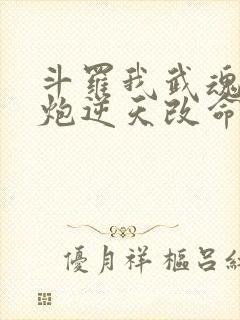 斗羅我武魂
炮逆天改命
優月祥樞呂紅